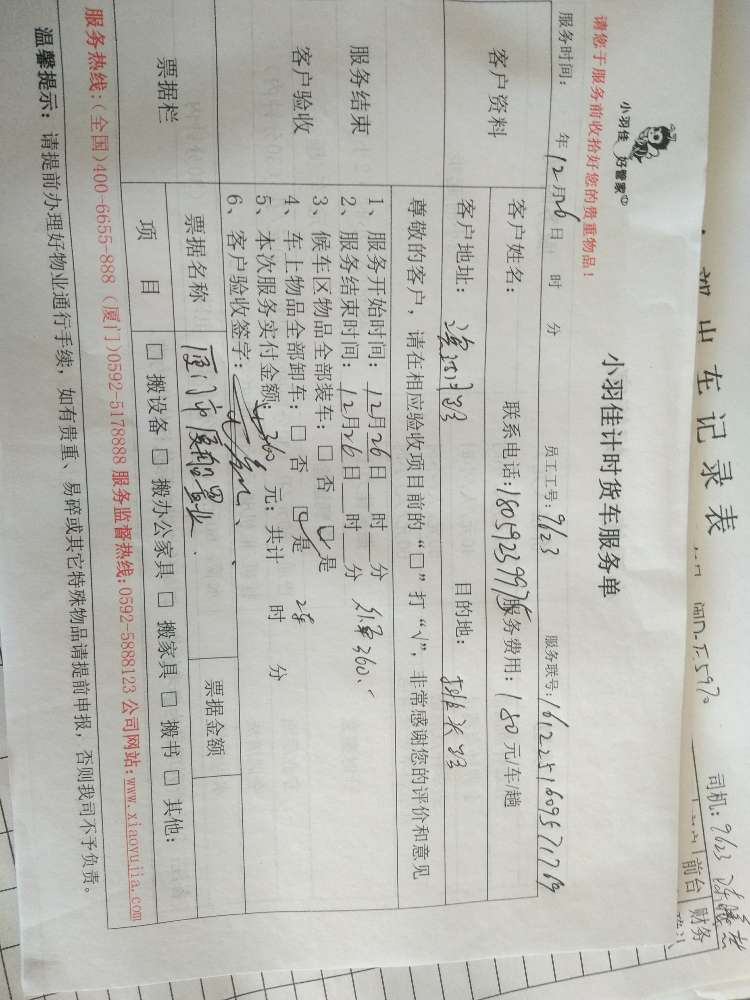 车记录表
司机: 9123
前台
财务
小羽佳 好管家
小羽佳计时货车服务单
请您于服务前收拾好您的贵重物品!
服务时间: 年12月26日 时 分 员工工号: 9123 服务联号:
客户资料
客户姓名: 联系电话: 18059239975 服务费用: 180元/车/趟
客户地址: 目的地:
尊敬的客户,请在相应验收项目前的“□”打“√”,非常感谢您的评价和意见
服务结束
客户验收
1、服务开始时间: 12月26日 时 分
2、服务结束时间: 12月26日 时 分 360
3、候车区物品全部装车: □ 否 ☑ 是
4、车上物品全部卸车: □ 否 ☑ 是
5、本次服务实付金额: 360 元; 共计 时 分
6、客户验收签字:
票据栏
票据名称 厦门市 票据金额
项 目 □ 搬设备 □ 搬办公家具 □ 搬家具 □ 搬书 □ 其他:
服务热线:(全国)400-6655-888 (厦门)0592-5178888 服务监督热线:0592-5888123 公司网站:www.xiaoyujia.com
温馨提示: 请提前办理好物业通行手续,如有贵重、易碎或其它特殊物品请提前申报,否则我司不予负责。